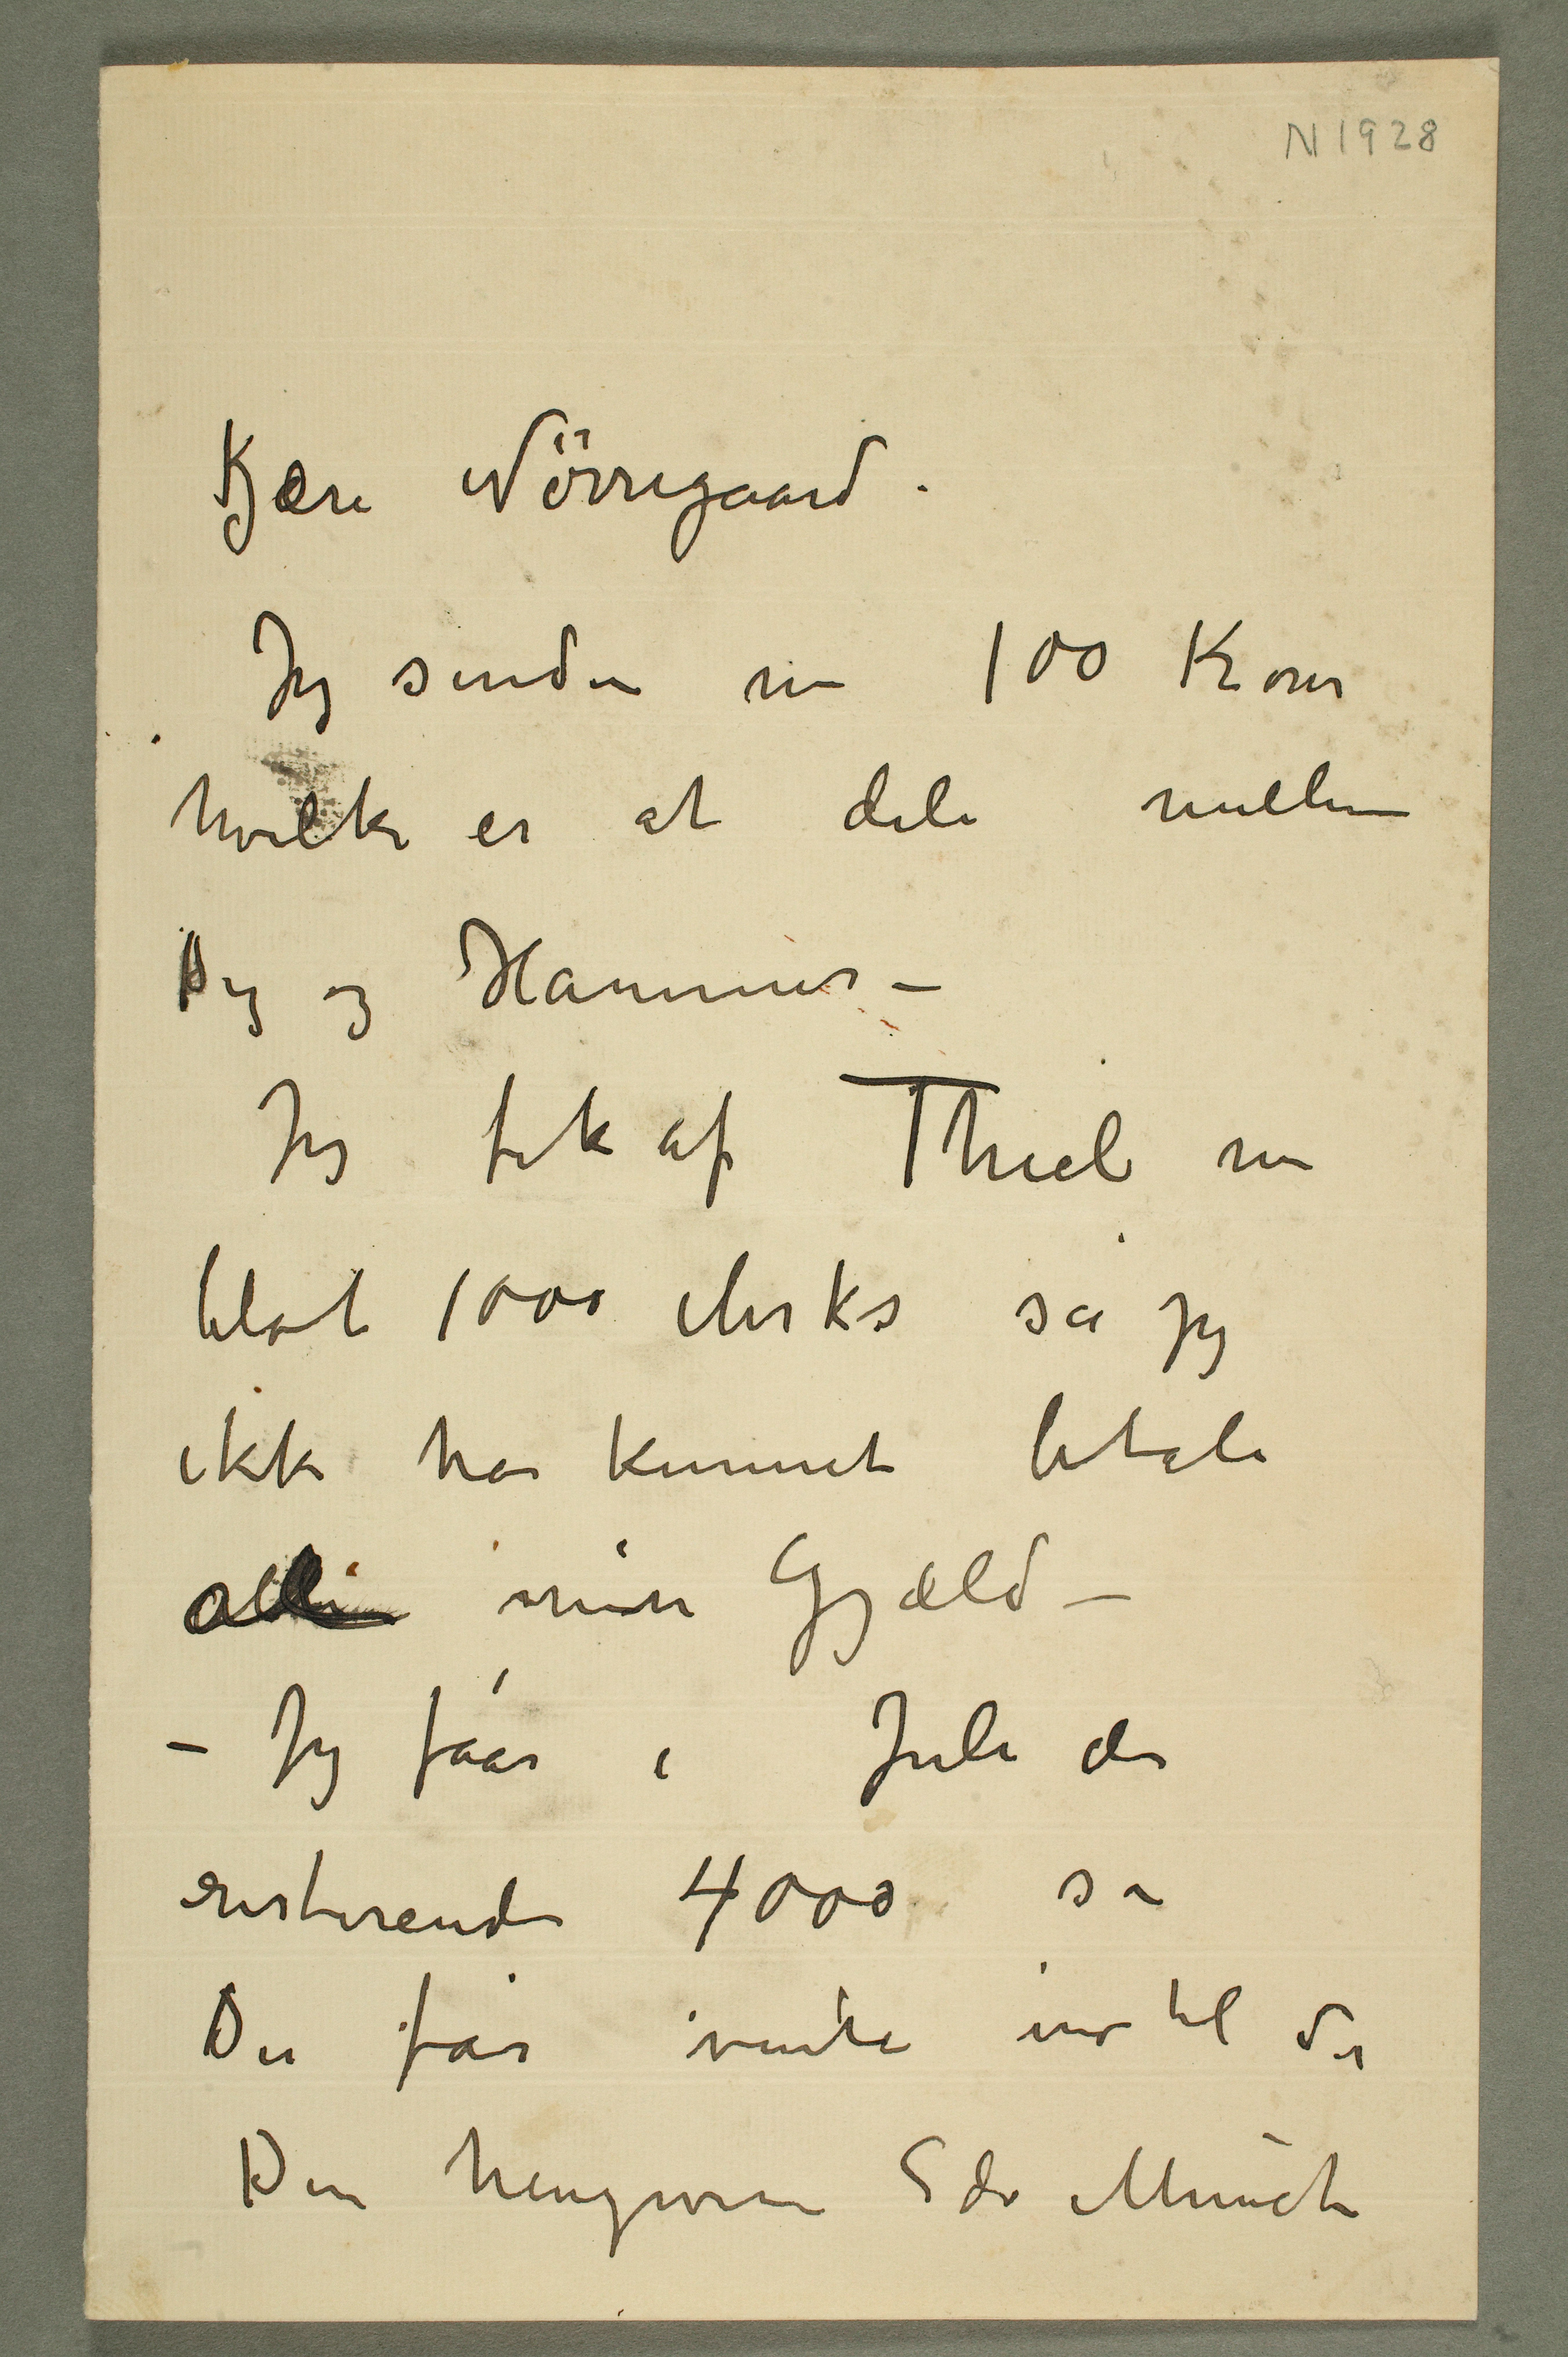 N 1928
Kjære Nörregaard.
Jeg sender nu 100 Kroner
hvilke er at dele mellem
Dig og Hammer –
Jeg fik af Thiel nu
blot 1000 Mrks så jeg
ikke har kunnet betale
alle min Gjæld –
– Jeg fåar i Juli de
resterende 4000 så
Du får vente ind til da
Din hengivne Edv Munch